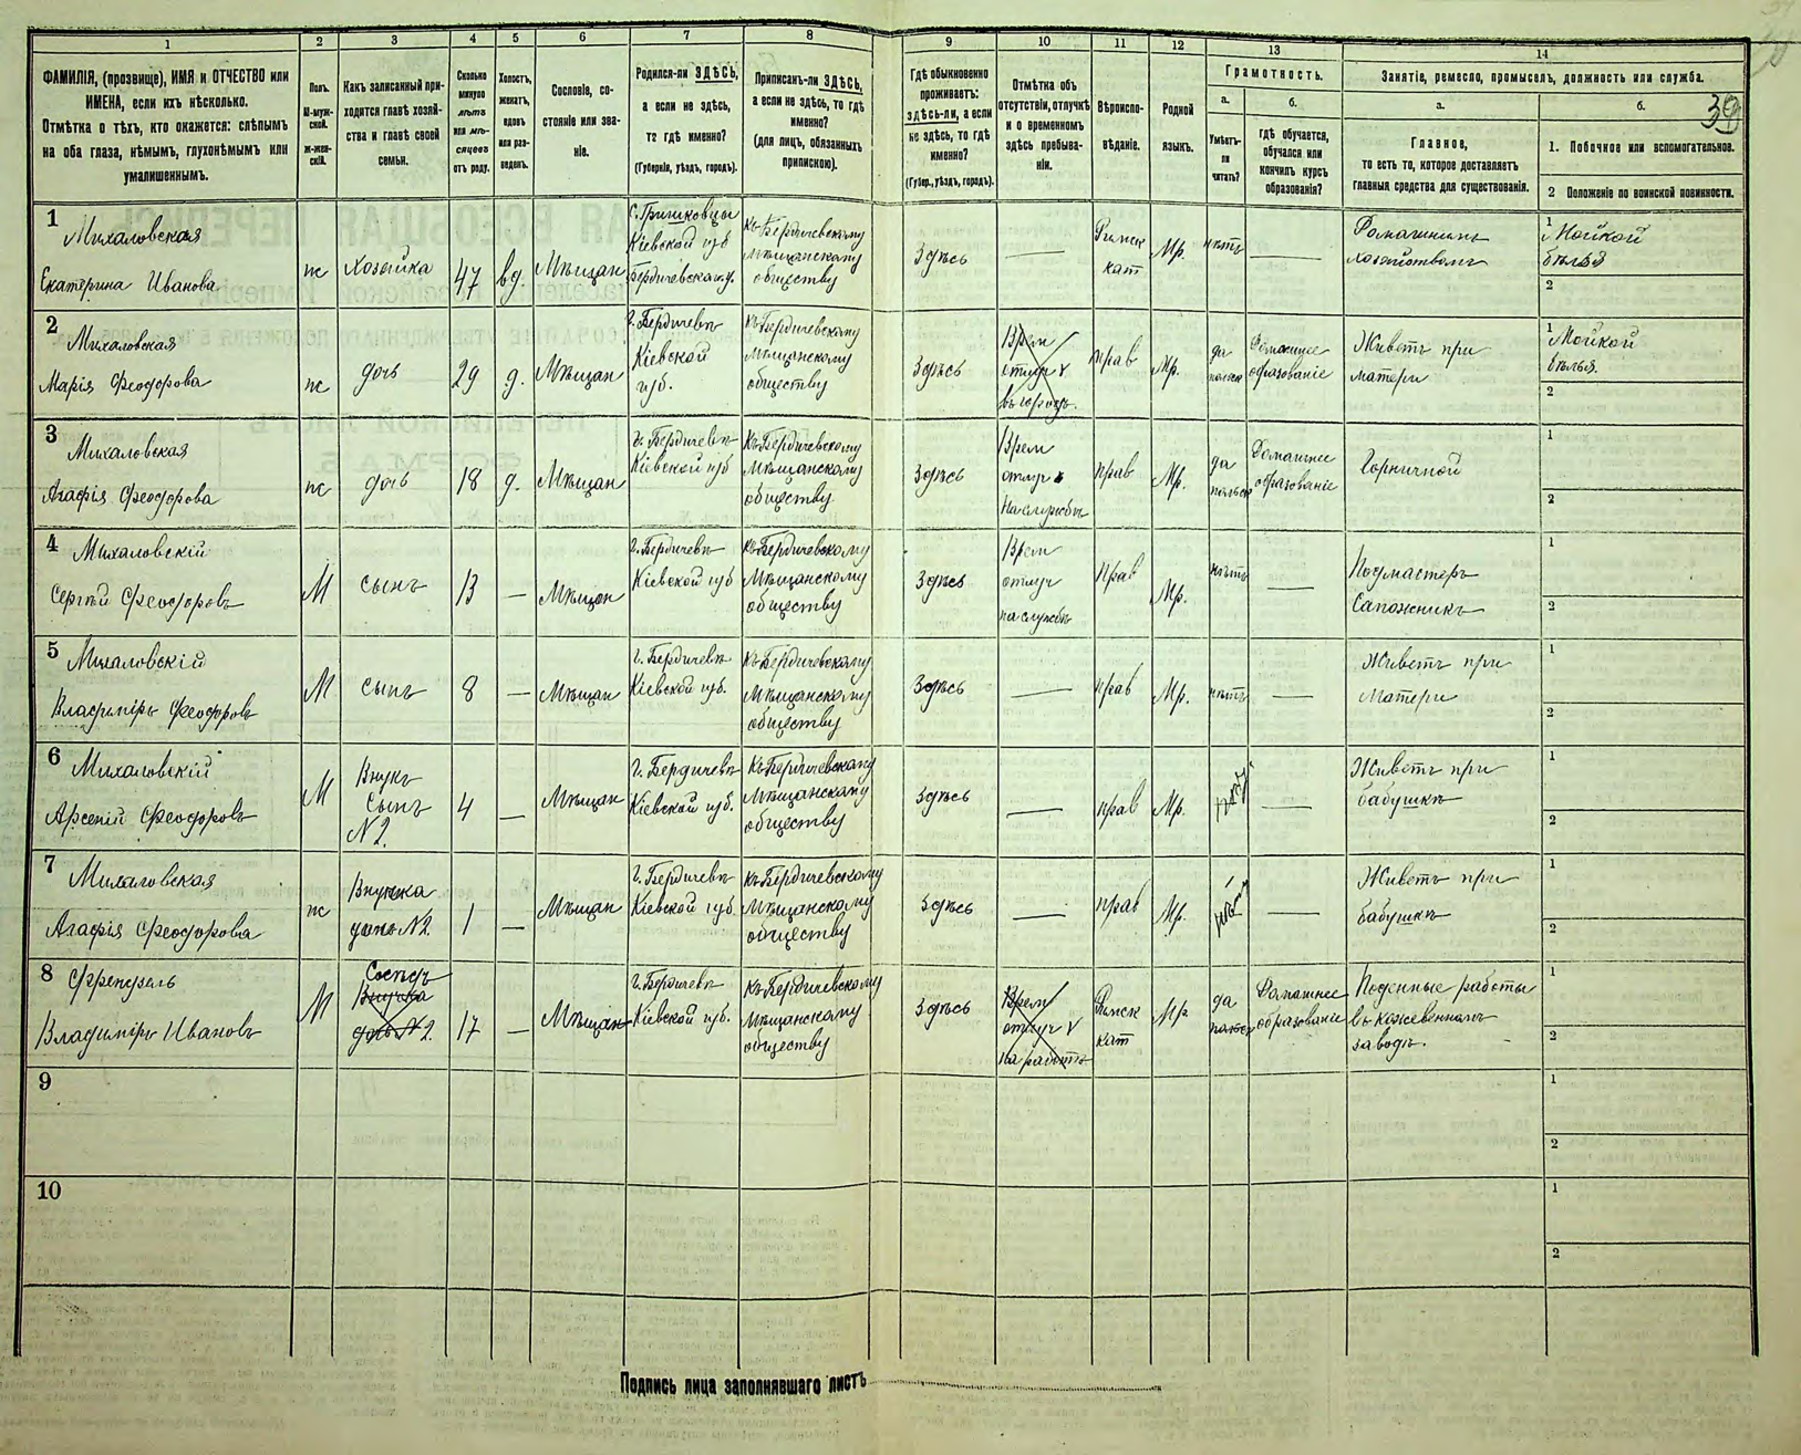 39
1
2
3
4
5
6
7
8
9
10
11
12
13
14
ФАМИЛІЯ, (прозвище), ИМЯ и ОТЧЕСТВО или
ИМЕНА, если ихъ нѣсколько.
Отмѣтка о тѣхъ, кто окажется: слѣпымъ
на оба глаза, нѣмымъ, глухонѣмымъ или
умалишеннымъ.
Полъ.
М-муж-
ской.
Ж-жен-
скій.
Какъ записанный при-
ходится главѣ хозяй-
ства и главѣ своей
семьи.
Сколько
минуло
лѣтъ
или мѣ-
сяцевъ
отъ роду.
Холостъ,
женатъ,
вдовъ
или раз-
веденъ.
Сословіе, со-
стояніе или зва-
ніе.
Родился-ли ЗДѢСЬ,
а если не здѣсь,
то гдѣ именно?
(Губернія, уѣздъ, городъ).
Приписанъ-ли ЗДѢСЬ,
а если не здѣсь, то гдѣ
именно?
(для лицъ, обязанныхъ
припискою).
Гдѣ обыкновенно
проживаетъ:
здѣсь-ли, а если
не здѣсь, то гдѣ
именно?
(Губер., уѣздъ, городъ).
Отмѣтка объ
отсутствіи, отлучкѣ
и о временномъ
здѣсь пребыва-
ніи.
Вѣроиспо-
вѣданіе.
Родной
языкъ.
Грамотность.
а.
Умѣетъ-
ли
читать?
б.
гдѣ обучается,
обучался или
кончилъ курсъ
образованія?
Занятіе, ремесло, промыселъ, должность или служба.
а.
Главное,
то есть то, которое доставляетъ
главныя средства для существованія.
б.
1. Побочное или вспомогательное.
2 Положеніе по воинской повинности.
1
Михаловская
Екатерина Иванова
ж
Хозяйка
47
вд.
Мѣщан
с. Гришковцы
Кіевской губ
Бердичевскаго у.
Къ Бердичевскому
мѣщанскому
обществу
Здѣсь
Римск
кат
Мр.
нѣтъ
Домашнимъ
хозяйствомъ
1 Мойкой
бѣлья
2
2
Михаловская
Марія Феодорова
ж
дочь
29
д.
Мѣщан
г. Бердичевъ
Кіевской
губ.
Къ Бердичевскому
мѣщанскому
обществу
Здѣсь
Врем
отлуч
въ городъ.
прав
Мр.
да
польск
Домашнее
образованіе
Живетъ при
матери
1 Мойкой
бѣлья.
2
3
Михаловская
Агафія Феодорова
ж
дочь
18
д.
Мѣщан
г. Бердичевъ
Кіевской губ
Къ Бердичевскому
Мѣщанскому
обществу
Здѣсь
Врем
отлуч
На службѣ
прав
Мр.
да
польск
Домашнее
образованіе
Горничной
1
2
4
Михаловскій
Сергѣй Феодоровъ
М
сынъ
13
Мѣщан
г. Бердичевъ
Кіевской губ
Къ Бердичевскому
Мѣщанскому
обществу
Здѣсь
Врем
отлуч
на службѣ
прав
Мр.
нѣтъ
Подмастеръ
Сапожникъ
1
2
5
Михаловскій
Владиміръ Феодоровъ
М
сынъ
8
Мѣщан
г. Бердичевъ
Кіевской губ.
Къ Бердичевскому
Мѣщанскому
обществу
Здѣсь
прав
Мр.
нѣтъ
Живетъ при
матери
1
2
6
Михаловскій
Арсеній Феодоровъ
М
Внукъ
Сынъ
N 2.
4
Мѣщан
г. Бердичевъ
Кіевской губ.
Къ Бердичевскому
Мѣщанскому
обществу
Здѣсь
прав
Мр.
нѣтъ
Живетъ при
бабушкѣ
1
2
7
Михаловская
Агафія Феодорова
ж
Внучка
дочь N 2.
1
Мѣщан
г. Бердичевъ
Кіевской губ
Къ Бердичевскому
Мѣщанскому
обществу
Здѣсь
прав
Мр.
нѣтъ
Живетъ при
бабушкѣ
1
2
8
Френзель
Владиміръ Ивановъ
М
Сосѣдъ
Внучка
дочь N 2.
17
Мѣщан
г. Бердичевъ
Кіевской губ.
Къ Бердичевскому
Мѣщанскому
обществу
Здѣсь
Врем
отлуч
на работѣ
Римск
кат
Мр
да
польск
Домашнее
образованіе
Поденные работы
въ кожевенномъ
заводѣ.
1
2
9
1
2
10
1
2
Подпись лица заполнявшаго листъ